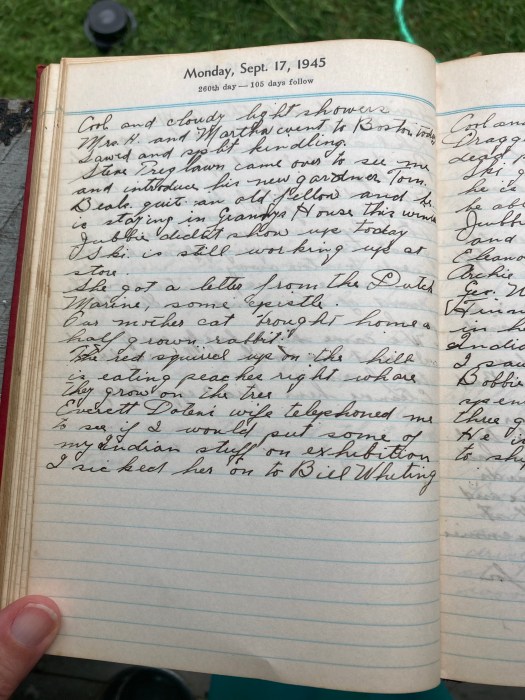 Monday, Sept. 17, 1945
260th day — 105 days follow
Cool and cloudy light showers
Mrs. H. and Martha went to Boston today
Sawed and split kindling.
Steve came over to see me
and introduce his new gardner Tom.
Beals quite an old fellow and he
is staying in Grannys House this winter
Jubbie didn't show up today
Ski is still working up at
store.
She got a letter from the Dutch
Marine, some Epistle.
Our mother cat brought home a
half grown rabbit.
The red squirel up on the hill
is eating peaches right whare
they grow on the tree
Everett wife telephoned me
to see if I would put some of
my Indian stuff on exhibition
I sicked her on to Bill Whiting
Cool and
Dragg
dead
Ski g
he is
he abl
Jubbi
and
Eleano
Archie
Geo.
in h
India
I saw
Bobbie
spen
three g
He is
to sh